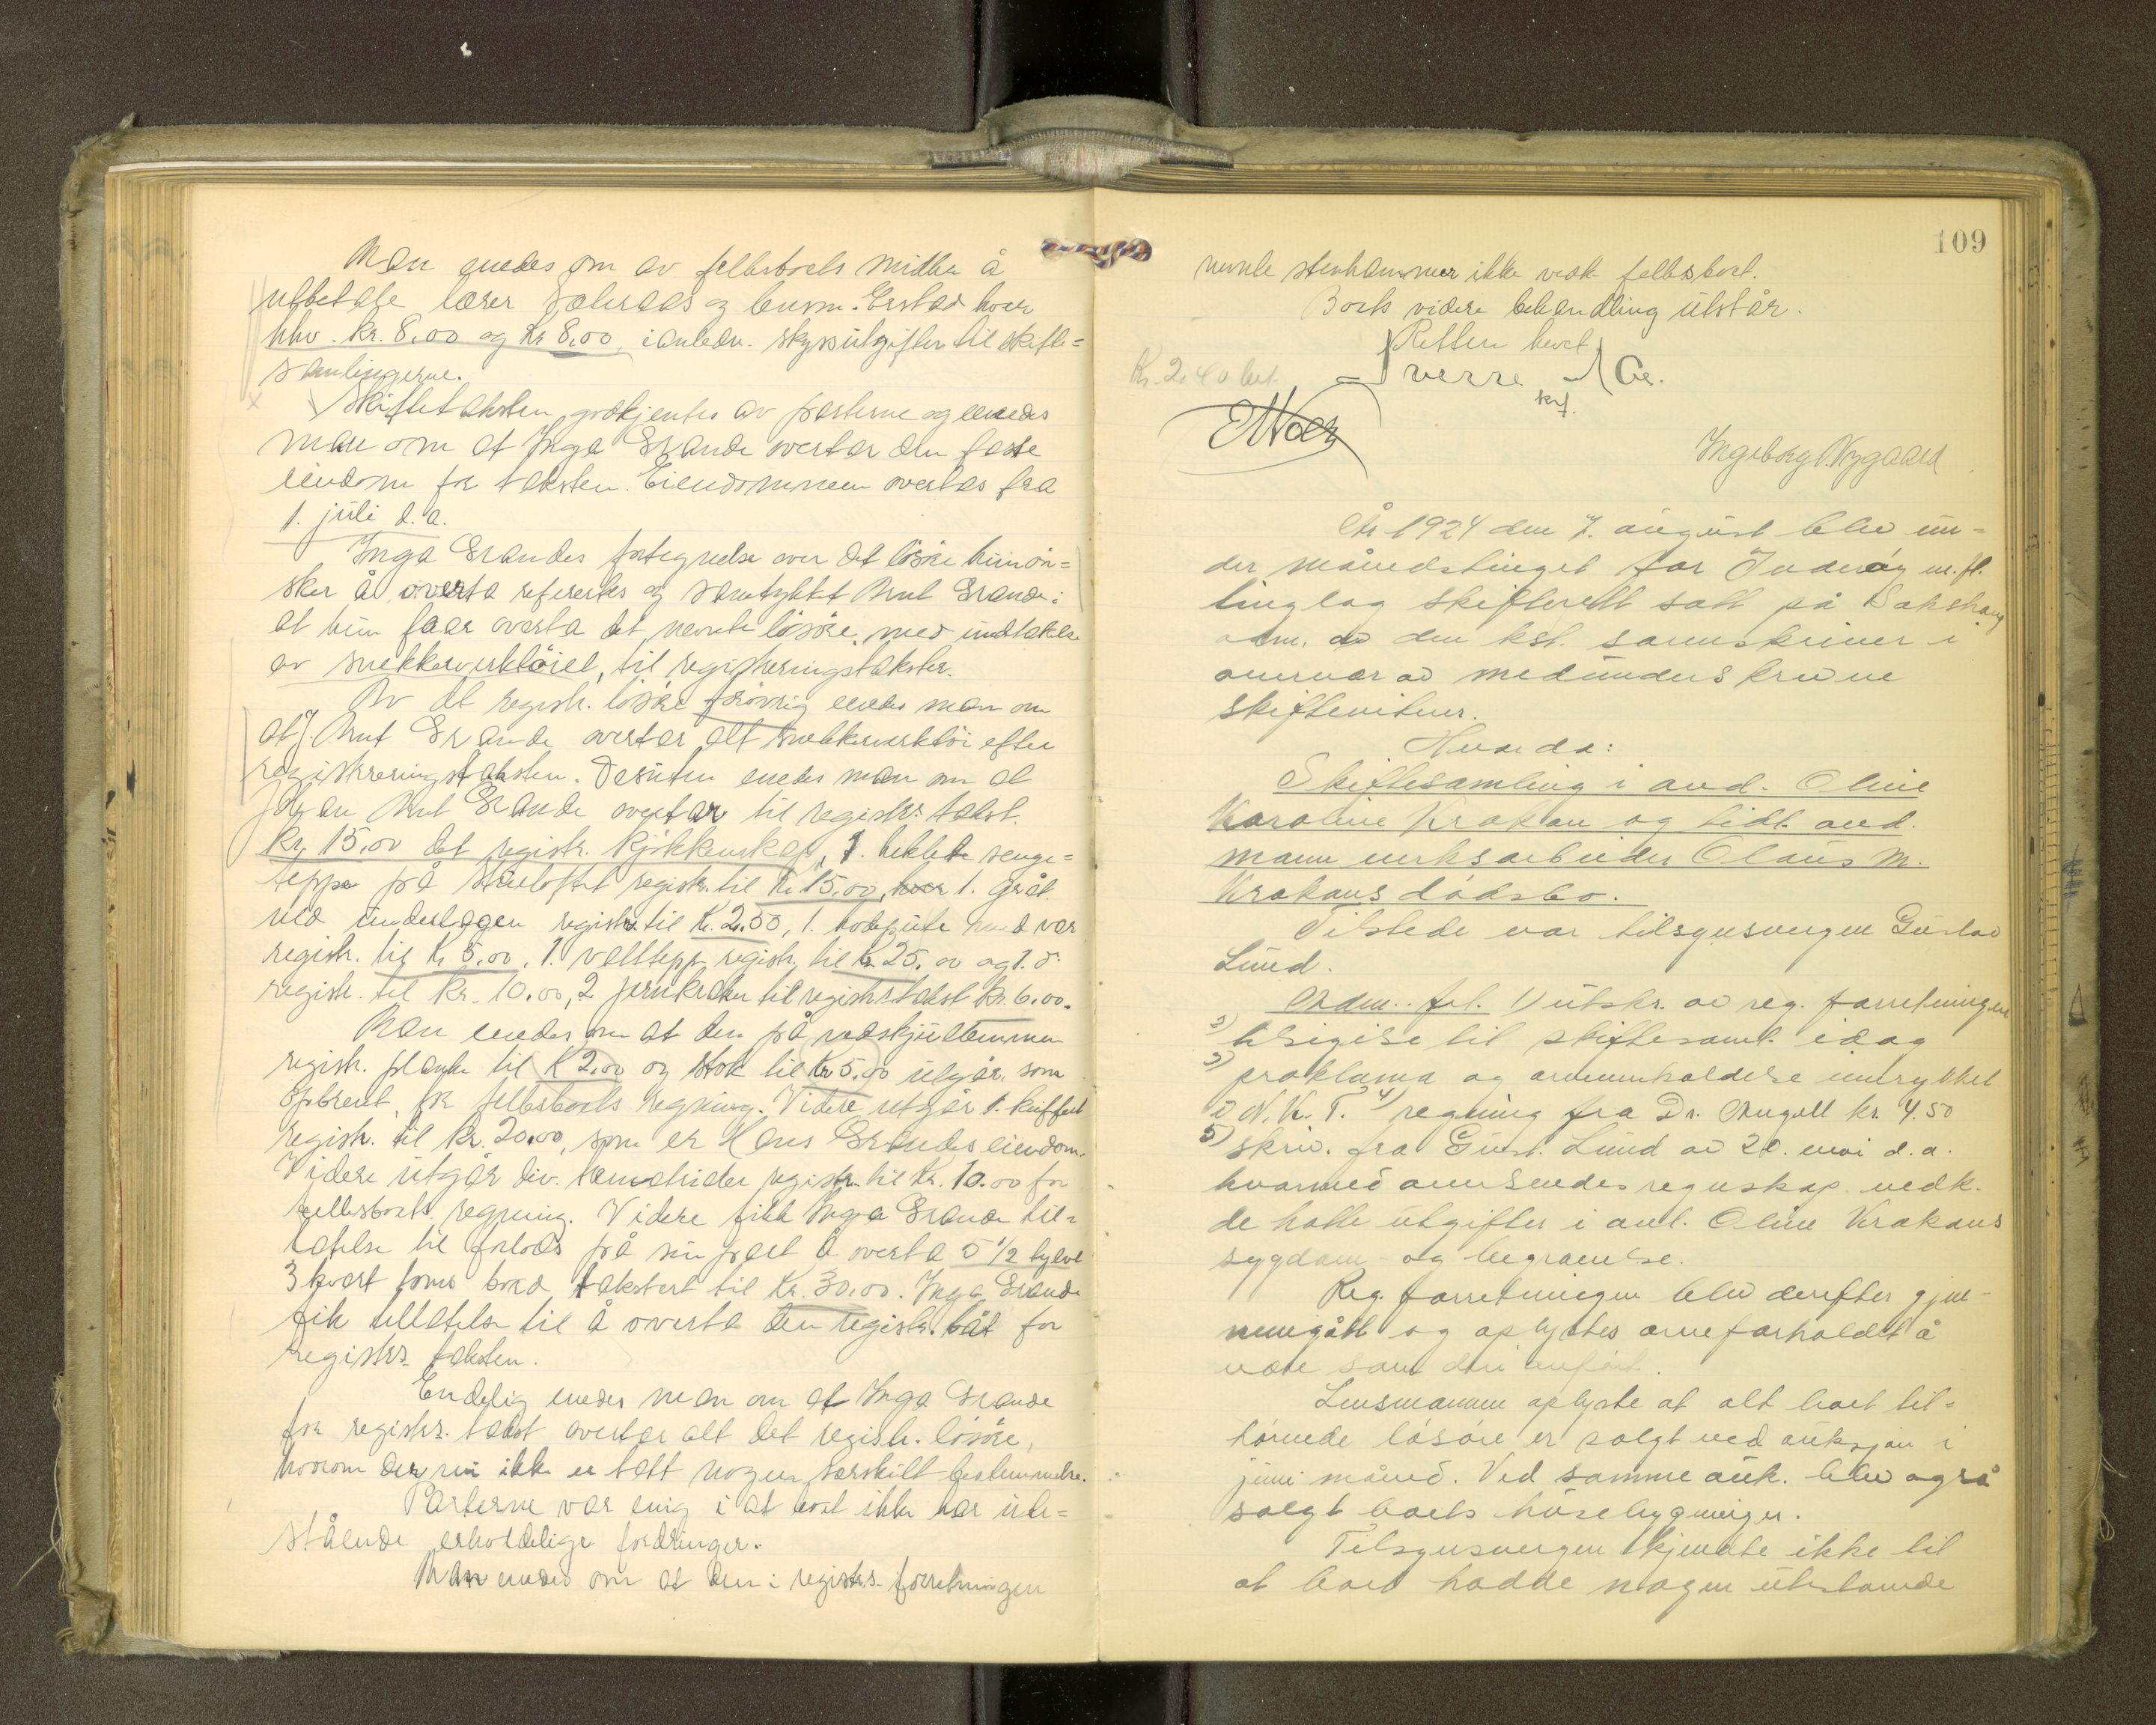 Man enedes om av fellesboets midler å
utbetale lærer og lensm. Erstad hver
hhv. kr. 8,00 og kr 8,00 i anledn. skyssutgifter til skifte=
samlingerne.
Skiftetaksten godkjentes av parterne og enedes
man om at Inga Grande overtar den faste
eiendom for taksten. Eiendommen overtas fra
1. juli d.a.
Inga Grandes fortegnelse over det løsøre hun øn=
sker å overta referertes og samtykket Arnt Grande i
at hun faar overta det nevnte løsøre, med undtakelse
av snekkerverktøiet, til registreringstakster.
Av det registr. løsøre forøvrig enedes man om
at J. Arnt Grande overtar alt snekkerverktøi efter
registreringstaksten. Desuten enedes man om at
Johan Arnt Grande overtar til registr. takst
kr. 15,00 det registr. kjøkkenskap, 1. heklete senge=
teppe på stueloftet registr. til kr. 15,00, 1. gråt
registr. til kr. 2,50, 1. hodepute med var
registr. til kr 5,00, 1. vattepp registr. til kr. 25,00 og 1. do
registr. til kr. 10,00, 2 jernkroker til registr. takst kr. 6,00.
Man enedes om at den på vedskjultømmen
registr. planke til kr 2,00 og stok til kr 5,00 utgår som
opbrent for fellesboets regning. Videre utgår 1. kuffert
registr. til kr. 20,00, som er Hans Grandes eiendom.
Videre utgår div. registr. til kr. 10.00 for
fellesboets regning. Videre fikk Inga Grande til=
latelse til forlods på sin part å overta 5 1/2 tylvt
3 kvart toms bord takstert til kr. 30.00. Inga Grande
fik tillatelse til å overta den registr. båt for
registr. taksten.
Endelig enedes man om at Inga Grande
for registr. takst overtar alt det registr. løsøre,
hvorom der nu ikke er tatt nogen særskilt bestemmelse.
Parterne var enig i at boet ikke har ute=
stående erholdelige fordringer.
Man enedes om at den i registr. forretningen
109
nevnte stenhammer ikke vedk. fellesboet.
Boets videre behandling utstår.
Retten hevet
Sverre
skf.
Kr. 2.40 bet.
Ingeborg Nygaard
År 1924 den 7. august blev un=
der månedstinget for Inderøy m.fl.
tinglag skifterett satt på Sakshaug
adm. av den kst. sorenskriver i
overvær av medunderskrevne
skiftevitner.
Hvorda:
Skiftesamling i avd. Oline
Karoline Krokan og tidl. avd.
mann verksarbeider Olaus M.
Krokans dødsbo.
Tilstede var tilsynsvergen Gustav
Lund.
Adm. frl. 1) utskr. av reg. forretningen
2) tilsigelse til skiftesaml. idag
3) proklama og arveinnkaldelse innrykket
i N. K. T. 4) regning fra Dr. Angell kr. 4.50
5) skriv. fra Gust. Lund av 20. mai d.a.
hvormed oversendes regnskap vedk.
de hatte utgifter i anl. Oline Krokans
sygdom og begravelse.
Reg. forretningen blev derefter gjen-
nemgått og oplystes arveforholdet å
være som deri anført.
Lensmannen oplyste at alt boet til=
hørende løsøre er solgt ved auksjon i
juni måned. Ved samme auk. blev også
solgt boets husebygninger.
Tilsynsvergen kjendte ikke til
at boet hadde nogen utestående